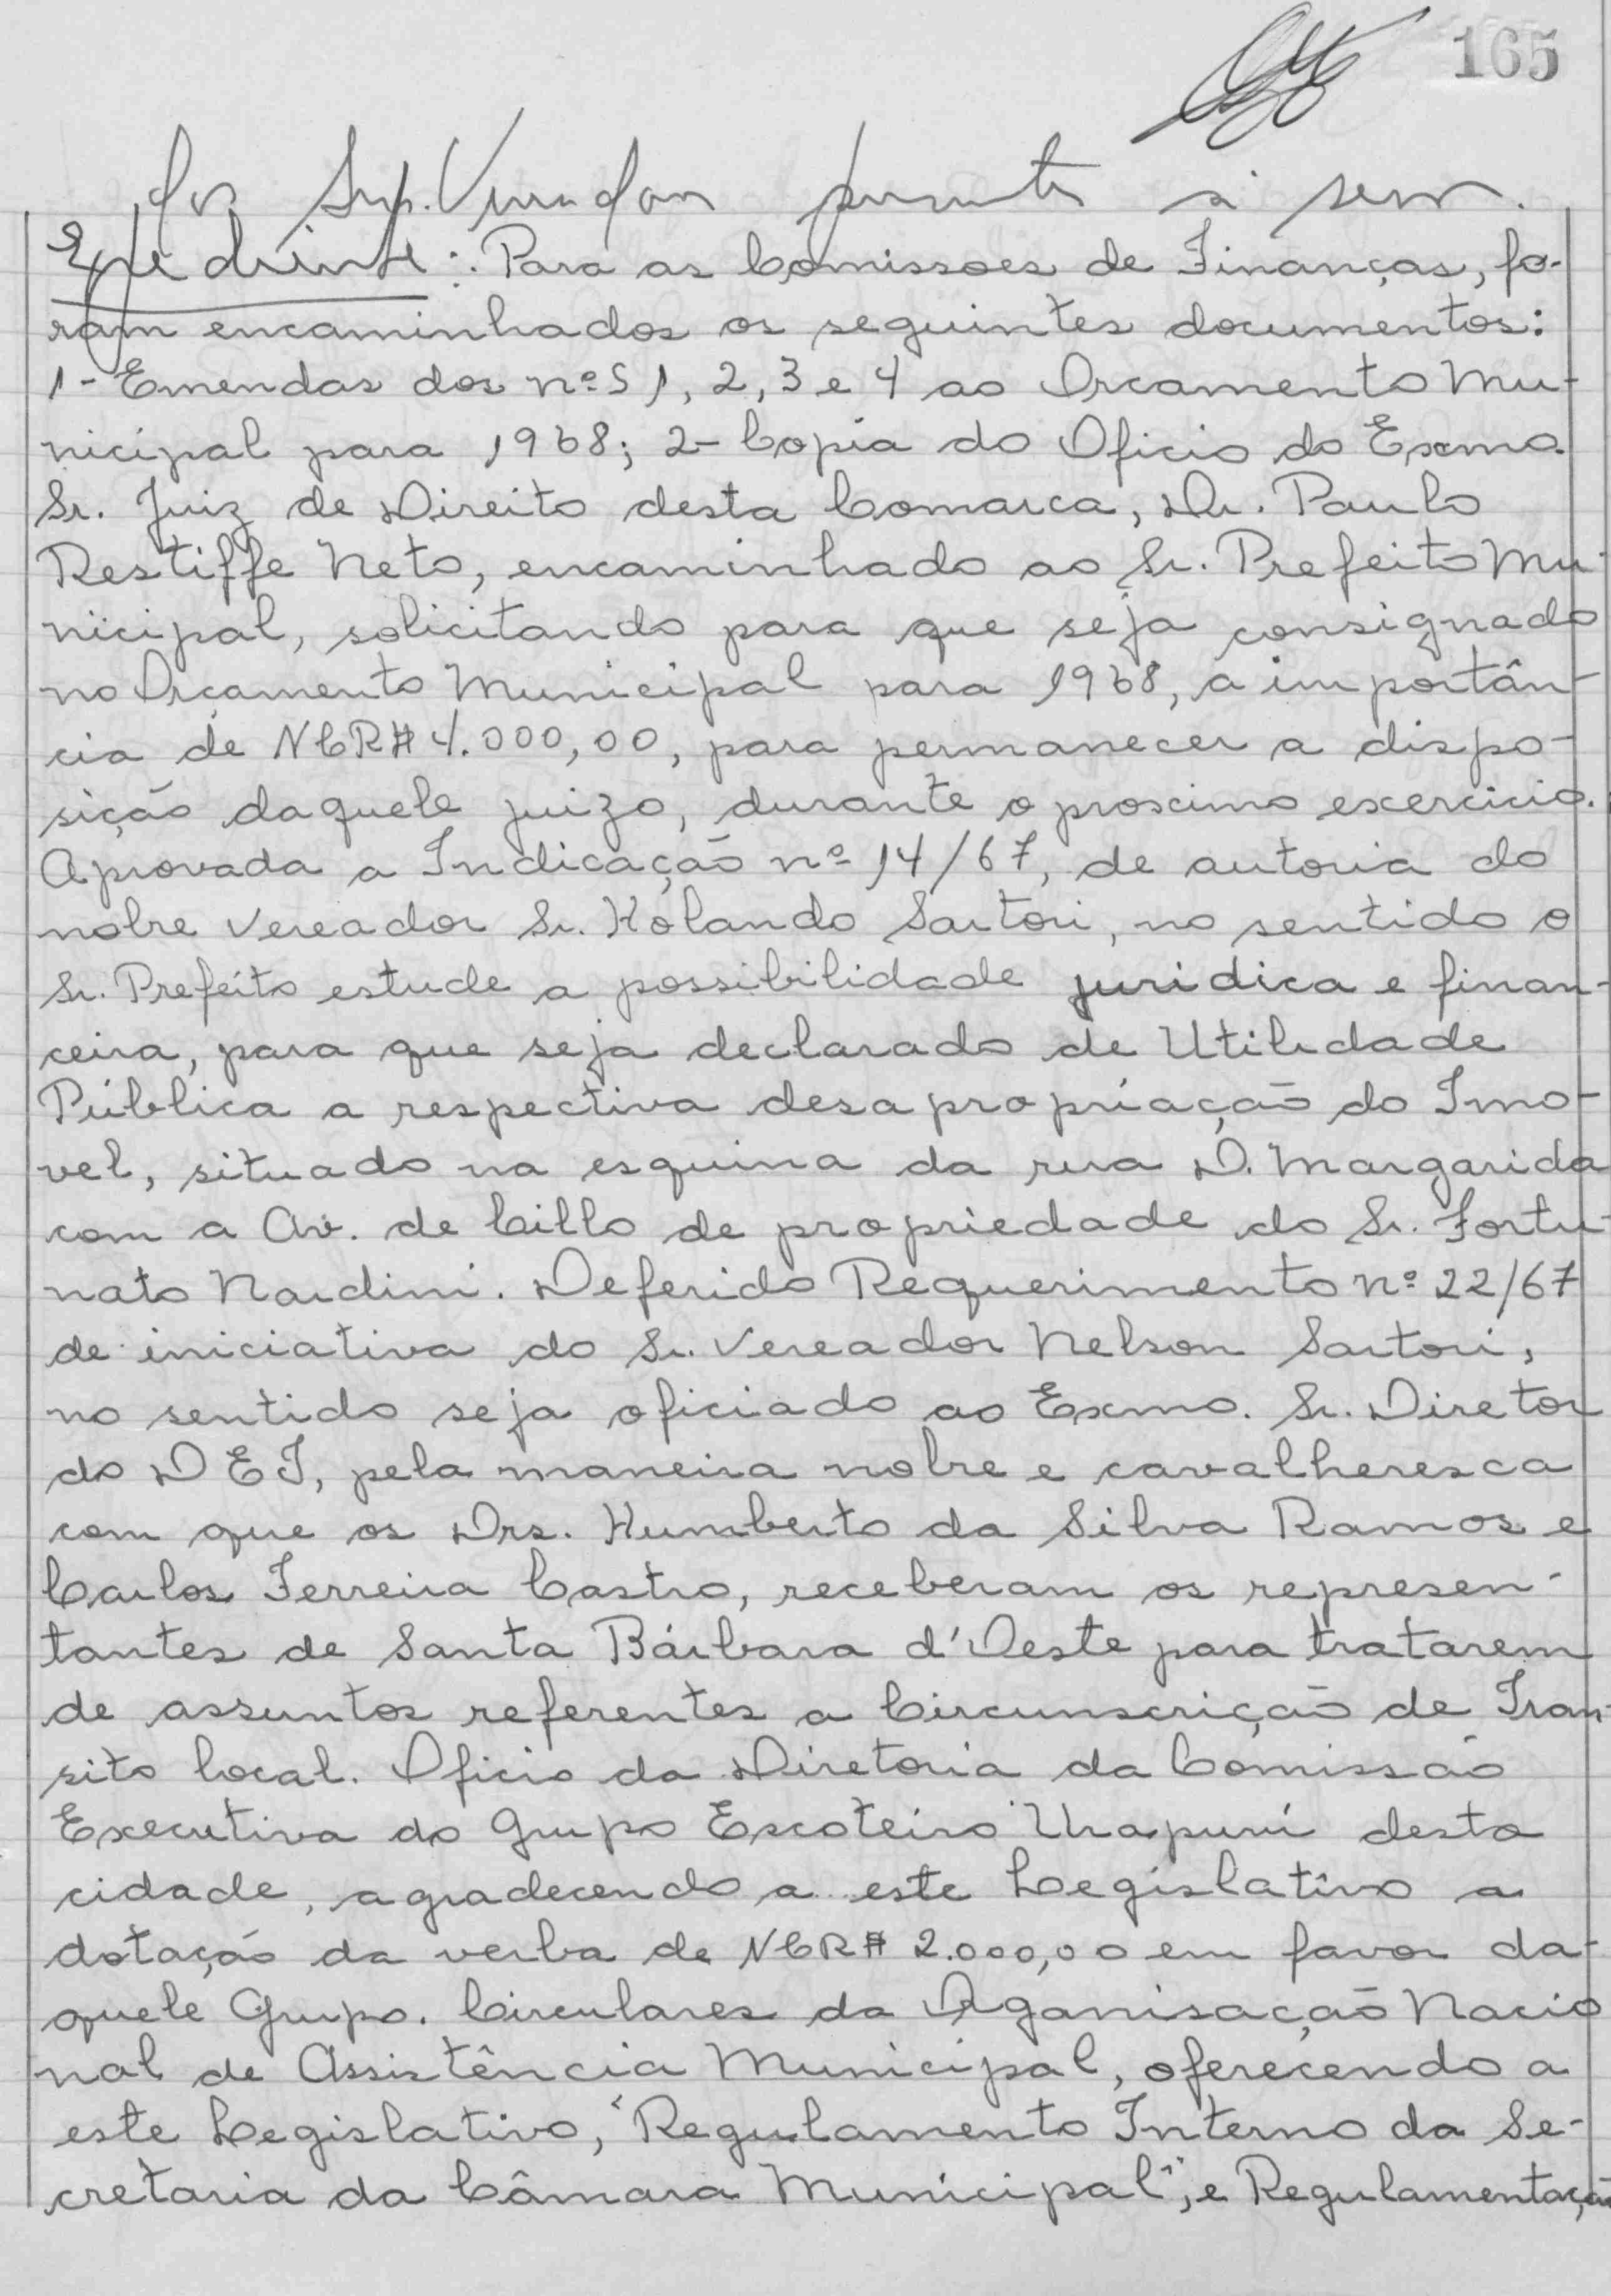 165
dos Srs. Vereadores presentes à sessão.
Expediente: Para as Comissoes de Finanças, fo-
ram encaminhados os seguintes documentos:
1- Emendas dos nºs 1, 2, 3 e 4 ao Orcamento Mu-
nicipal para 1968; 2- Copia do Oficio do Exmo.
Sr. Juiz de Direito desta Comarca, Dr. Paulo
Restiffe Neto, encaminhado ao Sr. Prefeito Mu-
nicipal, solicitando para que seja consignado
no Orçamento Municipal para 1968, a importân-
cia de NCR$ 4.000,00, para permanecer a dispo-
sição daquele juizo, durante o proximo exercicio.
Aprovada a Indicação nº 14/67, de autoria do
nobre vereador Sr. Holando Sartori, no sentido o
Sr. Prefeito estude a possibilidade juridica e finan-
ceira, para que seja declarado de Utilidade
Pública a respectiva desapropriação do Imo-
vel, situado na esquina da rua D. Margarida
com a Av. de Cillo de propriedade do Sr. Fortu-
nato Nardini. Deferido Requerimento nº 22/67
de iniciativa do Sr. Vereador Nelson Sartori,
no sentido seja oficiado ao Exmo. Sr. Diretor
do DET, pela maneira nobre e cavalheresca
com que os Drs. Humberto da Silva Ramos e
Carlos Ferreira Castro, receberam os represen-
tantes de Santa Bárbara d'Oeste para tratarem
de assuntos referentes a Circunscrição de Tran-
sito local. Oficio da Diretoria da Comissão
Executiva do Grupo Escoteiro Uirapurú desta
cidade, agradecendo a este Legislativo a
dotação da verba de NCR$ 2.000,00 em favor da-
quele Grupo. Circulares da Organisação Nacio
nal de Assistência Municipal, oferecendo a
este Legislativo, "Regulamento Interno da Se-
cretaria da Câmara Municipal", e Regulamentação